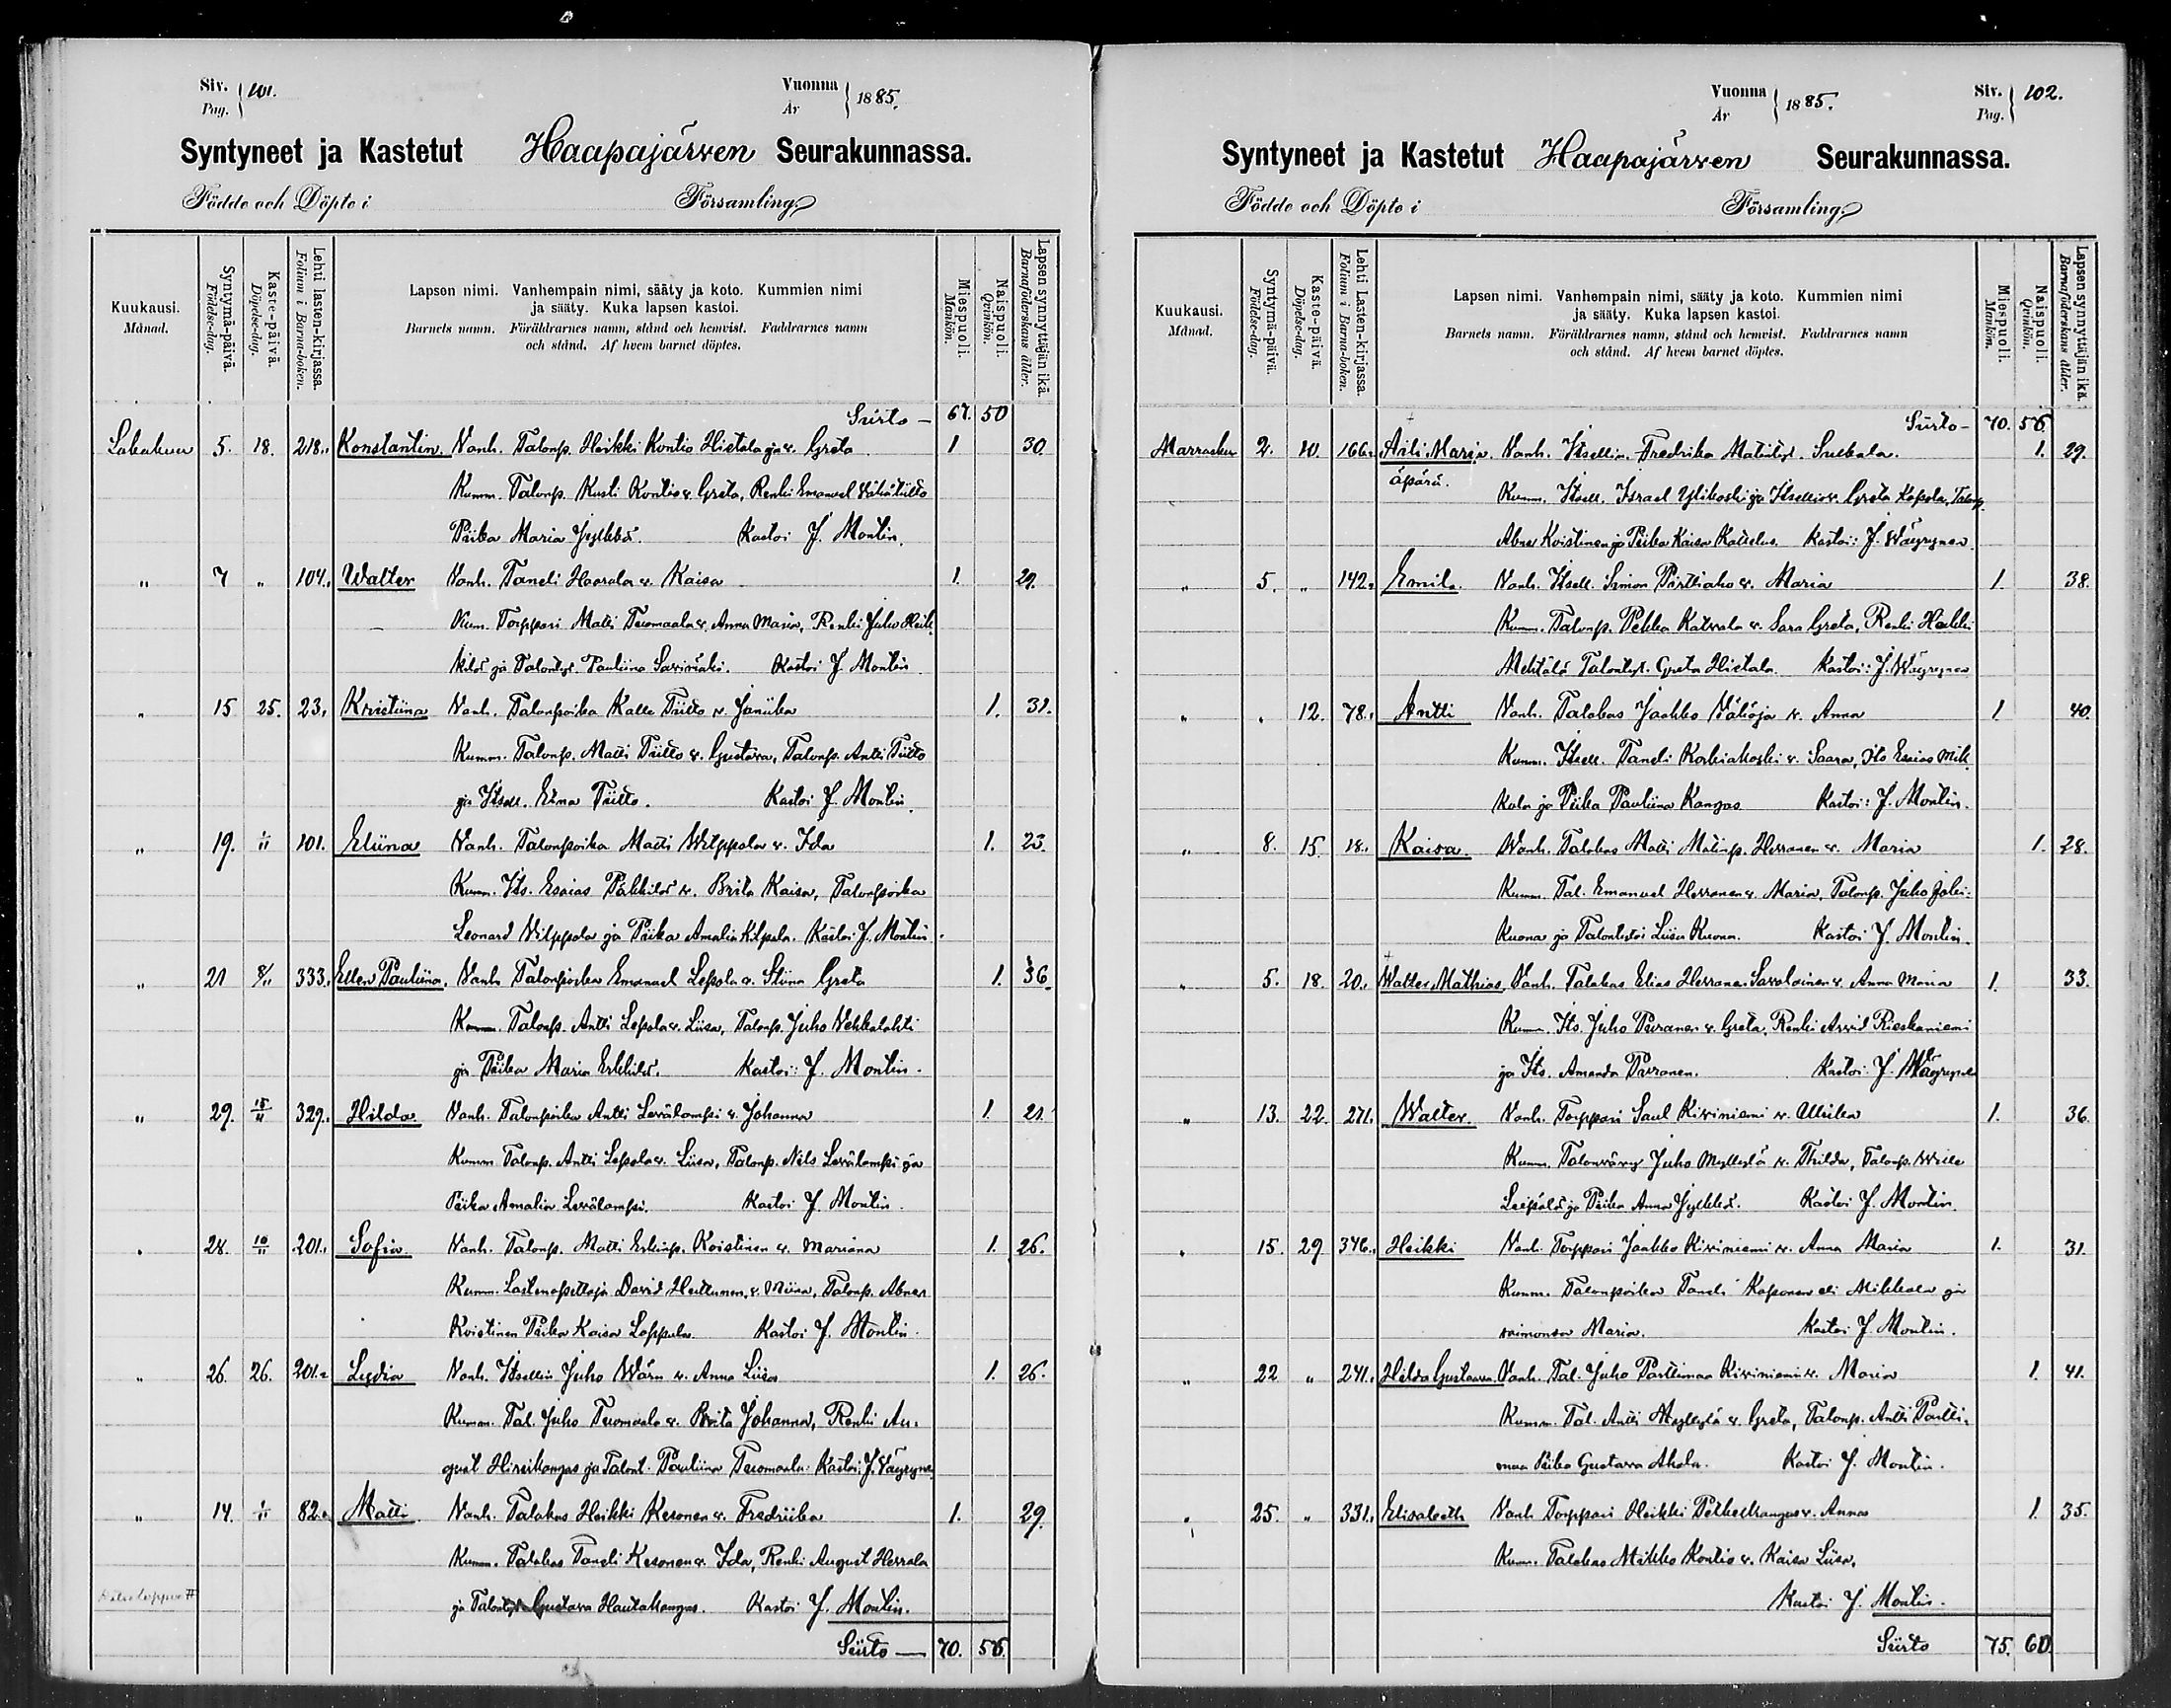 Siv. 101.
Pag.
Vuonna 1885.
År
Syntyneet ja Kastetut Haapajärven Seurakunnassa.
Födde och Döpte i Församling.
Kuukausi.
Månad.
Syntymä-päivä.
Födelse-dag.
Kaste-päivä.
Döpelse-dag.
Lehti lasten-kirjassa.
Folium i Barna-boken.
Lapsen nimi. Vanhempain nimi, sääty ja koto. Kummien nimi
ja sääty. Kuka lapsen kastoi.
Barnets namn. Föräldrarnes namn, stånd och hemvist. Faddrarnes namn
och stånd. Af hvem barnet döptes.
Miespuoli.
Mankön.
Naispuoli.
Qvinkön.
Lapsen synnyttäjän ikä.
Barnaföderskans ålder.
Siirto — 67. 50
Lokakuu 5. 18. 218. Konstantin. Vanh. Talonp. Heikki Kontio Hietala ja v. Greta 1 30.
Kumm. Talonp. Kusti Kontio v. Greta, Renki Emanuel
Piika Maria Jylkkä. Kastoi J. Montin.
" 7 " 104. Walter Vanh. Taneli Haarala v. Kaisa 1. 29.
Kum. Torppari Matti Tuomaala v. Anna Maria, Renki Juho Heik
kilä ja Talontyt. Pauliina Savimäki. Kastoi J. Montin
" 15 25. 23. Kristiina Vanh. Talonpoika Kalle Tiitto v. Janiika 1. 31.
Kumm. Talonp. Matti Tiitto v. Gustava, Talonp. Antti Tiitto
ja Itsell. Elna Tiitto. Kastoi J. Montin.
" 19. 1/11 101. Eliina Vanh. Talonpoika Matti Wilppola v. Ida 1. 23.
Kumm. Its. Esaias Pákkilä v. Brita Kaisa, Talonpoika
Leonard Vilppola ja Piika Amalia Kilpala. Kastoi J. Montin.
" 21 8/11 333. Ellen Pauliina. Vanh. Talonpoika Emanuel Lepola v. Stiina Greta 1. 36.
Kumm. Talonp. Antti Lepola v. Liisa, Talonp. Juho Vehkalahti
ja Piika Maria Erkkilä. Kastoi: J. Montin.
" 29. 15/11 329. Hilda. Vanh. Talonpoika Antti Levälampi v. Johanna 1. 21.
Kumm. Talonp. Antti Lepola v. Liisa, Talonp. Nils Levälampi ja
Piika Amalia Levälampi. Kastoi J. Montin.
" 28. 10/11 201. Sofia. Vanh. Talonp. Matti Erkinp. Koistinen v. Mariana 1. 26.
Kumm. Lastenopettaja David Heittunen, v. Miina, Talonp. Abner
Koistinen Piika Kaisa Loppula Kastoi J. Montin.
" 26. 26. 201. Lydia Vanh. Itsellis Juho Wärn v. Anna Liisa 1. 26.
Kumm. Tal. Juho Tuomaala v. Brita Johanna, Renki Au-
gust Hirsikangas ja Talont. Pauliina Tuomaala Kastoi: J. Väyrynen
" 14. 1/11 82. Matti. Vanh. Talokas Heikki Kesonen v. Fredriika 1. 29.
Kumm. Talokas Taneli Kesonen v. Ida, Renki August Herrala
ja Talontyt. Gustava Hautakangas. Kastoi J. Montin.
Siirto — 70. 56.
Vuonna 1885.
År
Siv. 102.
Pag.
Syntyneet ja Kastetut Haapajärven Seurakunnassa.
Födde och Döpte i Församling.
Kuukausi.
Månad.
Syntymä-päivä.
Födelse-dag.
Kaste-päivä.
Döpelse-dag.
Lehti Lasten-kirjassa.
Folium i Barna-boken.
Lapsen nimi. Vanhempain nimi, sääty ja koto. Kummien nimi
ja sääty. Kuka lapsen kastoi.
Barnets namn. Föräldrarnes namn, stånd och hemvist. Faddrarnes namn
och stånd. Af hvem barnet döptes.
Miespuoli.
Mankön.
Naispuoli.
Qvinkön.
Lapsen synnyttäjän ikä.
Barnaföderskans ålder.
Siirto — 70. 56
Marraskuu 2. 10. 166. Aili Maria Vanh. Itsellin. Fredrika Matintyt. 1. 29.
äpärä. Kumm. Itsell. Israel Ylikoski ja Itsellis v. Greta Kapola, Talonp.
Abner Koistinen ja Piika Kaisa Kastoi: J. Wäyrynen
" 5. " 142. Emil. Vanh. Itsell. Simon Pirttiaho v. Maria 1. 38.
Kumm. Talonp. Pekka Katvala v. Sara Greta, Renki Heikki
Mehtälä Talontyt. Greta Hietala Kastoi: J. Wäyrynen
" " 12. 78. Antti Vanh. Talokas Jaakko Väliöja v. Anna 1 40.
Kumm. Itsell. Taneli Korkiakoski v. Saara, Its Esaias Mik
kola ja Piika Pauliina Kangas Kastoi: J. Montin.
" 8. 15. 18. Kaisa. Vanh. Talokas Matti Matinp. Herranen v. Maria 1. 28.
Kumm. Tal. Emanuel Herranen v. Maria, Talonp. Juho Joki-
Kuona ja Talontytär Liisa Kuona. Kastoi J. Montin.
" 5. 18. 20. Walter Mathias, Vanh. Talokas Elias Herranen Savolainen v. Anna Maria 1. 33.
Kumm. Its. Juho Puranen v. Greta, Renki Arvid Rieskaniemi
ja Its. Amanda Puranen. Kastoi J. Wäyrynen
" 13. 22. 271. Walter. Vanh. Torppari Saul Kiviniemi v. Ulriika 1. 36.
Kumm. Talonvävy Juho Myllylä v. Thilda, Talonp. Wille
Leipälä ja Piika Anna Jylkkä. Kastoi J. Montin
" 15. 29 346. Heikki Vanh. Torppari Jaakko Kiviniemi v. Anna Maria 1. 31.
Kumm. Talonpoika Taneli Kaponen eli Mikkola ja
vaimonsa Maria. Kastoi J. Montin.
" 22 " 241. Hilda Gustava. Vanh. Tal. Juho Parttimaa Kiviniemi v. Maria 1. 41.
Kumm. Tal. Antti Myllylä v. Greta, Talonp. Antti Partti-
maa Piika Gustava Ahola. Kastoi J. Montin.
" 25. " 331. Elisabeth Vanh. Torppari Heikki Petkelkangas v. Anna 1. 35.
Kumm. Talokas Mikko Kontio v. Kaisa Liisa,
Kastoi J. Montin.
Siirto 75. 60.